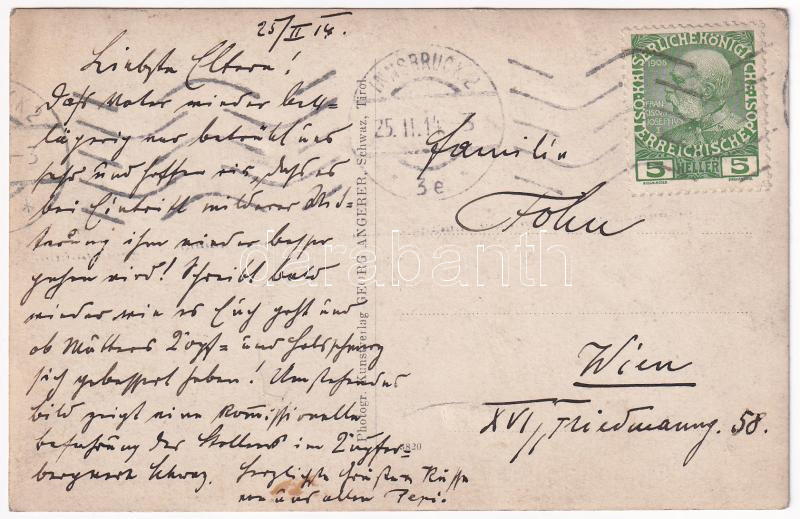 25/II 14.
Liebste Eltern!
Daß Vater wieder bett-
lägerig war betrübt uns
sehr und hoffen wir, daß es
bei Eintritt milderer Wit-
terung ihm wieder besser
gehen wird! Schreibt bald
wieder wie es Euch geht und
ob Mutters Kopf- und Halsschmerz
sich gebessert haben! Umstehendes
Bild zeigt eine kommissionelle
Befahrung des Stollens im Kupfer-
bergwerk Schwaz. Herzlichste Grüße u. Küsse
von uns allen Pepi.
Photogr. Kunstverlag GEORG ANGERER, Schwaz, Tirol.
6820
INNSBRUCK 2
25. II. 14
3e
1908
FRANZ
JOSEF I
5 HELLER 5
Familie
Wien
XVI/ Thiedmanng. 58.
darabanth